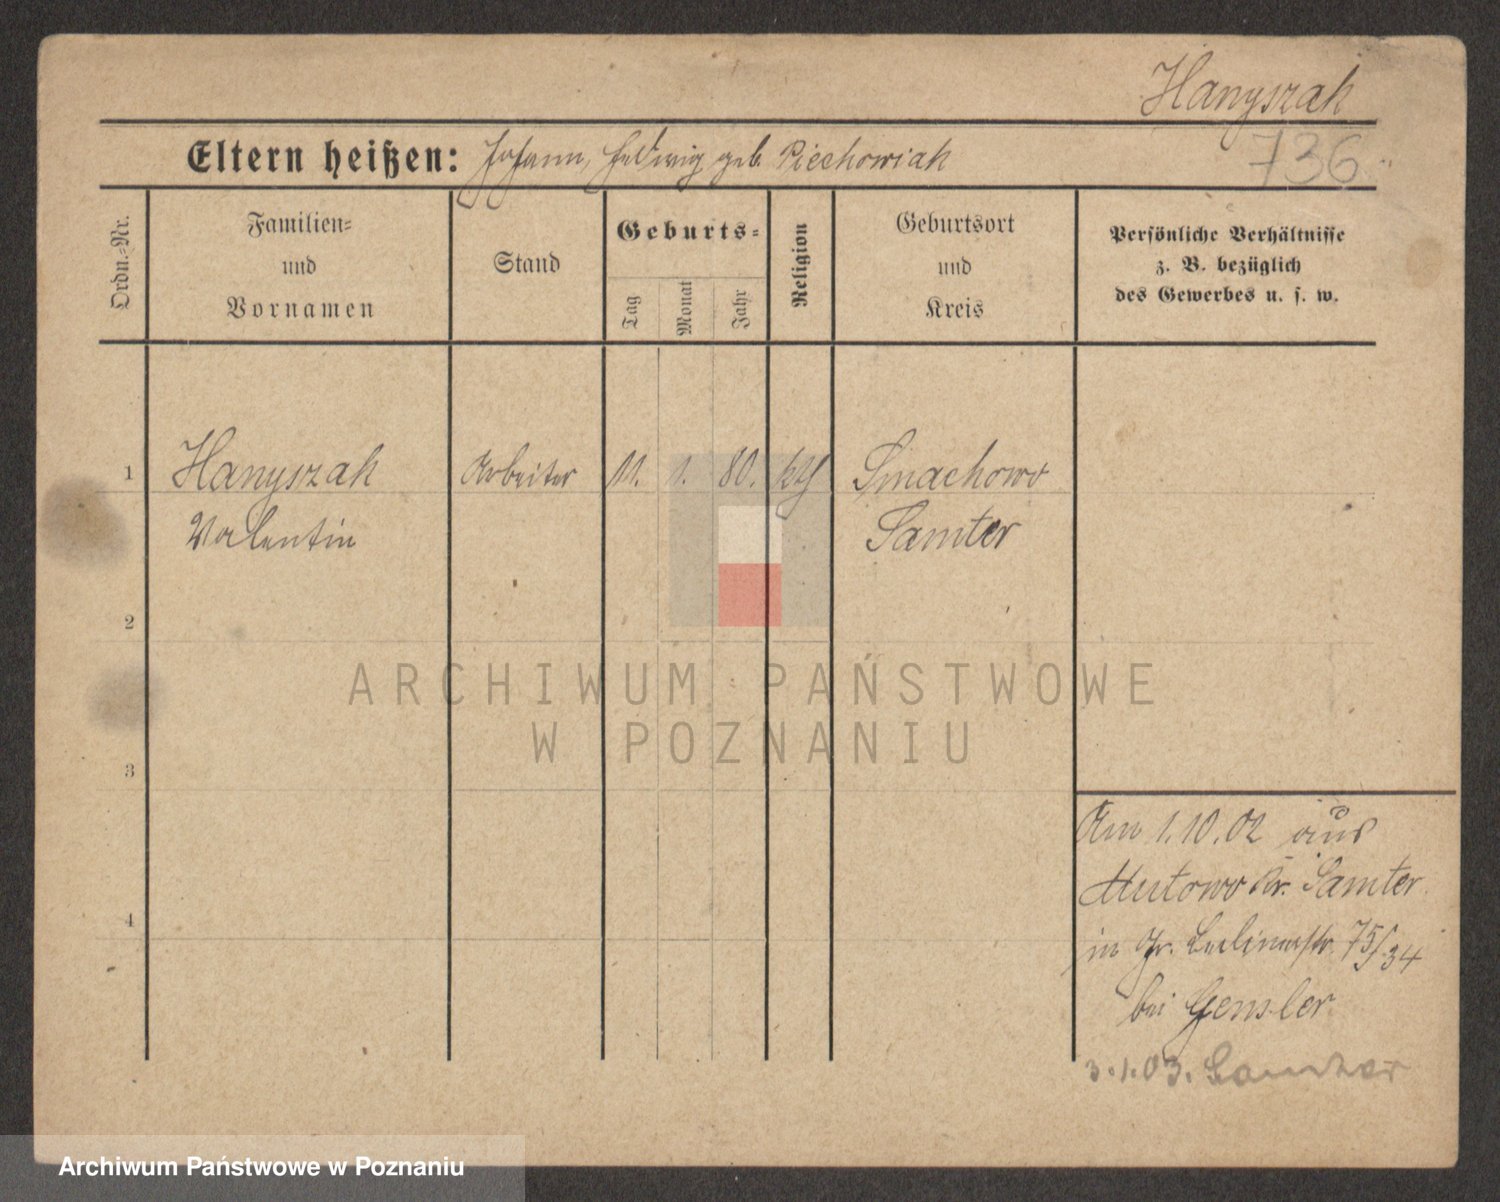 Hanyszak
736
Eltern heißen: Johann, Hedwig geb. Piechowiak
Ordn.=Nr.
Familien=
und
Vornamen
Stand
Geburts=
Tag
Monat
Jahr
Religion
Geburtsort
und
Kreis
Persönliche Verhältnisse
z. B. bezüglich
des Gewerbes u. s. w.
1 Hanyszak Arbeiter 11. 1. 80. kth Smachowo
Valentin Samter
2
3
4
Am 1.10.02 aus
Mutowo Kr. Samter
in Gr. 75/34
bei Gensler
3.1.03. Samter
ARCHIWUM PAŃSTWOWE
W POZNANIU
Archiwum Państwowe w Poznaniu